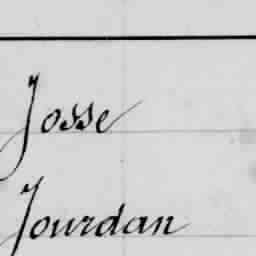 Josse
Jourdan